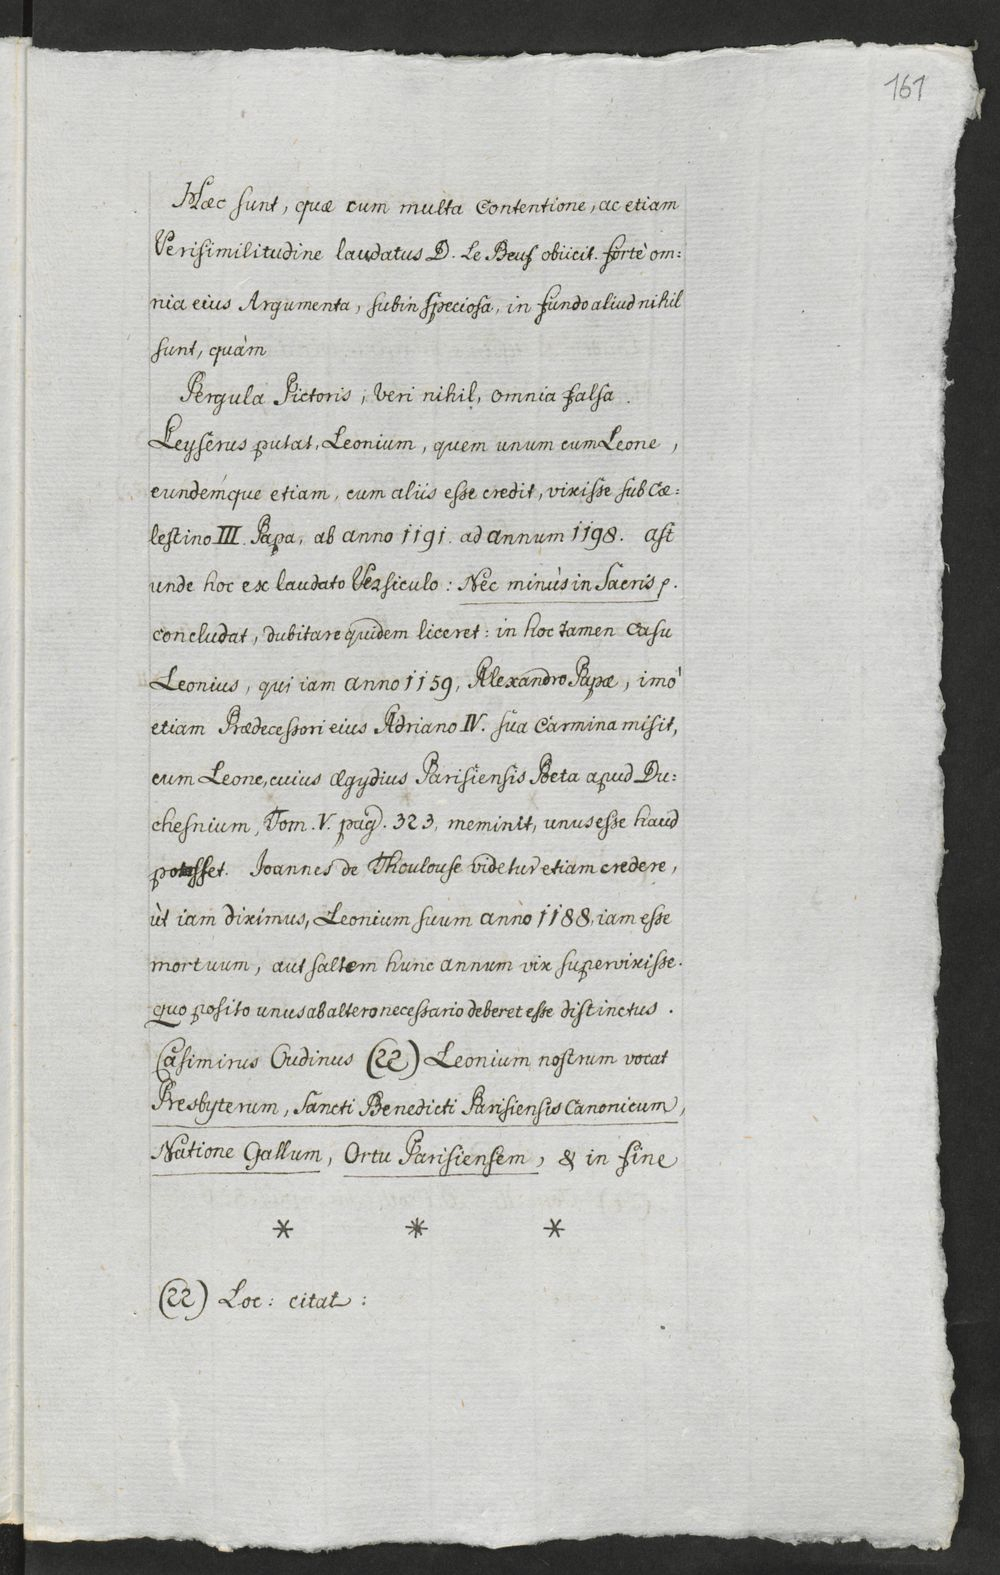 161
Hæc sunt, quæ cum multa Contentione, ac etiam
Verisimilitudine laudatus D. Le Beuf obiicit. fortè om:
nia eius Argumenta, subin speciosa, in fundo aliud nihil
sunt, quàm
Pergula Pictoris, veri nihil, omnia falsa.
Leyserus putat, Leonium, quem unum cum Leone,
eundemque etiam, cum aliis esse credit, vixisse sub Cæ:
lestino III. Papa, ab anno 1191. ad annum 1198. ast
unde hoc ex laudato Versiculo: Nec minùs in Sacris p.
concludat, dubitare quidem liceret: in hoc tamen Casu
Leonius, qui iam anno 1159, Alexandro Papæ, imò
etiam Prædecessori eius Adriano IV. sua Carmina misit,
cum Leone, cuius Ægydius Parisiensis Poeta apud Du:
chesnium, Tom. V. pag. 323, meminit, unus esse haud
posset. Joannes de Thoulouse videtur etiam credere,
ùt iam diximus, Leonium suum anno 1188, iam esse
mortuum, aut saltem hunc annum vix supervixisse.
quo posito unus ab altero necessario deberet esse distinctus.
Casimirus Oudinus (22) Leonium nostrum vocat
Presbyterum, Sancti Benedicti Parisiensis Canonicum,
Natione Gallum, Ortu Parisiensem, & in fine
* * *
(22) Loc: citat: